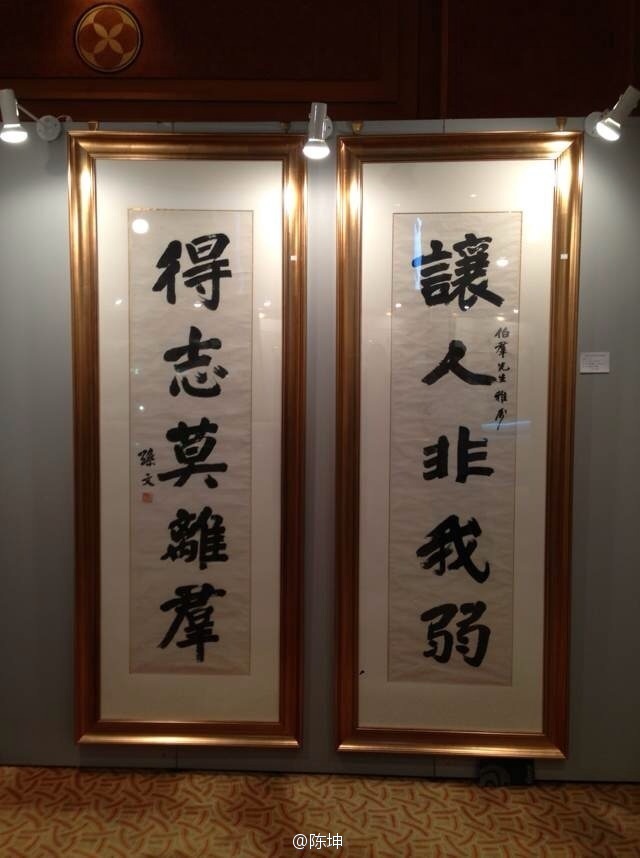 讓人非我弱
伯羣先生雅屬
得志莫離羣
孫文
@陈坤